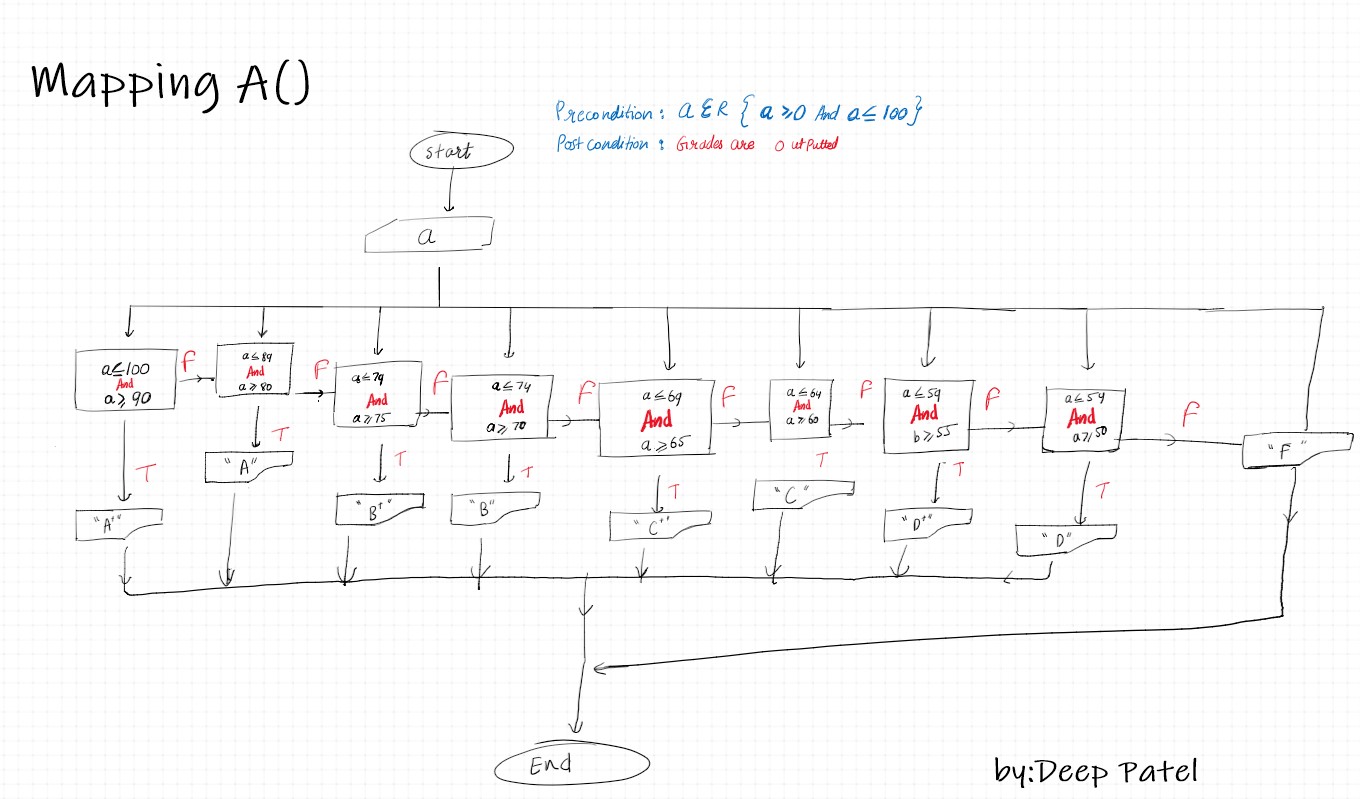 Mapping A()
Precondition: a ∈ R { a ≥ 0 And a ≤ 100 }
Post condition : Grades are outputted
start
a
a ≤ 100
And
a ≥ 90
F
a ≤ 89
And
a ≥ 80
F
a ≤ 79
And
a ≥ 75
F
a ≤ 74
And
a ≥ 70
F
a ≤ 69
And
a ≥ 65
F
a ≤ 64
And
a ≥ 60
F
a ≤ 59
And
b ≥ 55
F
a ≤ 54
And
a ≥ 50
F
"F"
T
"A+"
T
"A"
T
"B+"
T
"B"
T
"C+"
T
"C"
T
"D+"
T
"D"
End
by:Deep Patel